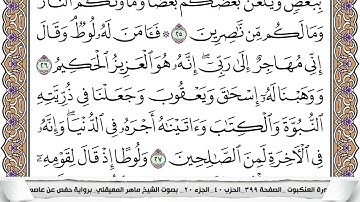 بِبَعْضٍ وَيَلْعَنُ بَعْضُكُم بَعْضًا وَمَأْوَىٰكُمُ ٱلنَّارُ
وَمَا لَكُم مِّن نَّٰصِرِينَ ٢٥ ۞ فَـَٔامَنَ لَهُۥ لُوطٌ وَقَالَ
إِنِّي مُهَاجِرٌ إِلَىٰ رَبِّيٓ إِنَّهُۥ هُوَ ٱلْعَزِيزُ ٱلْحَكِيمُ ٢٦
وَوَهَبْنَا لَهُۥٓ إِسْحَٰقَ وَيَعْقُوبَ وَجَعَلْنَا فِي ذُرِّيَّتِهِ
ٱلنُّبُوَّةَ وَٱلْكِتَٰبَ وَءَاتَيْنَٰهُ أَجْرَهُۥ فِي ٱلدُّنْيَا وَإِنَّهُۥ
فِي ٱلْءَاخِرَةِ لَمِنَ ٱلصَّٰلِحِينَ ٢٧ وَلُوطًا إِذْ قَالَ لِقَوْمِهِۦٓ
ورة العنكبوت _ الصفحة ٣٩٩ _ الحزب ٤٠ _ الجزء ٢٠ _ بصوت الشيخ ماهر المعيقلي _ برواية حفص عن عاصم